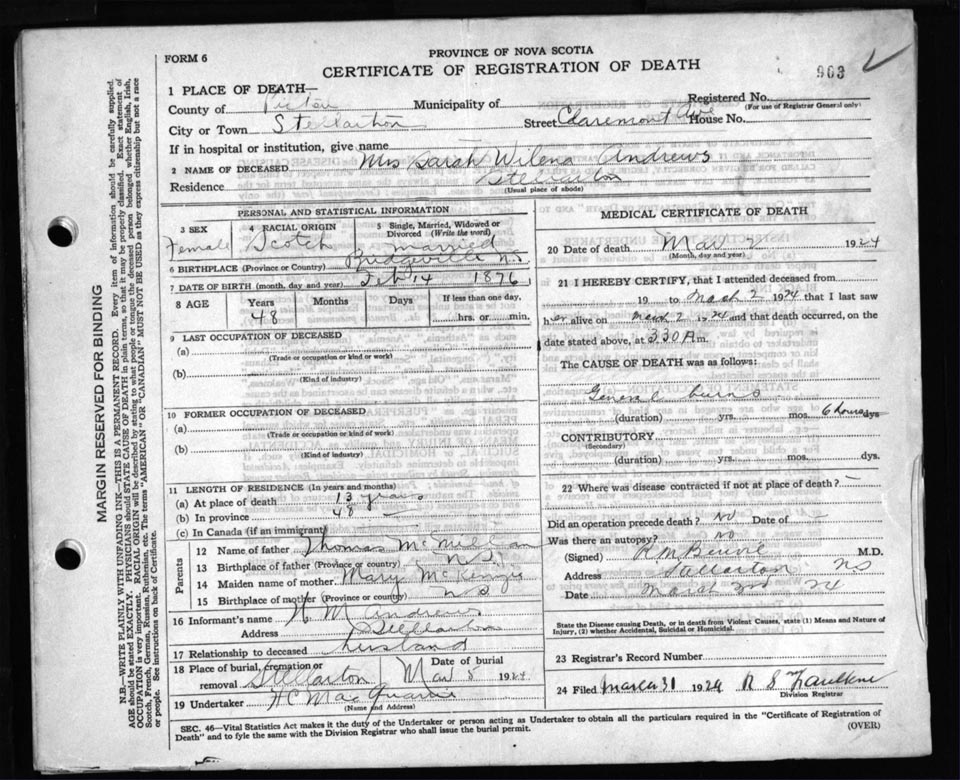 FORM 6
PROVINCE OF NOVA SCOTIA
CERTIFICATE OF REGISTRATION OF DEATH
903
1 PLACE OF DEATH—
Registered No.
(For use of Registrar General only)
County of Pictou Municipality of
City or Town Stellarton Street Claremont Ave House No.
If in hospital or institution, give name
2 NAME OF DECEASED Mrs Sarah Wilena Andrews
Residence Stellarton
(Usual place of abode)
PERSONAL AND STATISTICAL INFORMATION
3 SEX
Female
4 RACIAL ORIGIN
Scotch
Single, Married, Widowed or Divorced (Write the word)
married
6 BIRTHPLACE (Province or Country) Bridgeville N.S.
7 DATE OF BIRTH (month, day and year) Feby 14 1876
8 AGE Years Months Days If less than one day,
48 hrs. or min.
9 LAST OCCUPATION OF DECEASED
(a)
(Trade or occupation or kind or work)
(b)
(Kind of industry)
10 FORMER OCCUPATION OF DECEASED
(a)
(Trade or occupation or kind of work)
(b)
(Kind of industry)
11 LENGTH OF RESIDENCE (In years and months)
(a) At place of death 13 years
(b) In province 48 —
(c) In Canada (if an immigrant)
Parents
12 Name of father Thomas McMillan
13 Birthplace of father (Province or country) N.S.
14 Maiden name of mother Mary McKenzie
15 Birthplace of mother (Province or country) N S
16 Informant's name H M Andrews
Address Stellarton
17 Relationship to deceased husband
18 Place of burial, cremation or removal Stellarton
Date of burial
Mar 5 1924
19 Undertaker H C MacQuarrie
(Name and Address)
MEDICAL CERTIFICATE OF DEATH
20 Date of death Mar 2 1924
(Month, day and year)
21 I HEREBY CERTIFY, that I attended deceased from
19 to March 2 1924 that I last saw
her alive on March 2 1924 and that death occurred, on the
date stated above, at 3.30 A m.
The CAUSE OF DEATH was as follows:
General burns
(duration) yrs. mos. 6 hours dys
CONTRIBUTORY
(Secondary)
(duration) yrs. mos. dys.
22 Where was disease contracted if not at place of death? —
Did an operation precede death? NO Date of —
Was there an autopsy? NO
(Signed) M.D.
Address Stellarton NS
Date March 2nd 24
State the Disease causing Death, or in death from Violent Causes, state (1) Means and Nature of Injury, (2) whether Accidental, Suicidal or Homicidal.
23 Registrar's Record Number
24 Filed March 31 1924 R S Faulkner
Division Registrar
SEC. 46—Vital Statistics Act makes it the duty of the Undertaker or person acting as Undertaker to obtain all the particulars required in the "Certificate of Registration of
Death" and to fyle the same with the Division Registrar who shall issue the burial permit.
(OVER)
MARGIN RESERVED FOR BINDING
N.B.—WRITE PLAINLY WITH UNFADING INK—THIS IS A PERMANENT RECORD. Every item of information should be carefully supplied.
AGE should be stated EXACTLY. PHYSICIANS should STATE CAUSE OF DEATH in plain terms, so that it may be properly classified. Exact statement of
OCCUPATION is very important. RACIAL ORIGIN will be described by stating to what people or tongue the deceased person belonged whether English, Irish,
Scotch, French, German, Russian, Ruthenian, etc. The terms "AMERICAN" or "CANADIAN" MUST NOT BE USED as they express citizenship but not a race
or people. See instructions on back of Certificate.